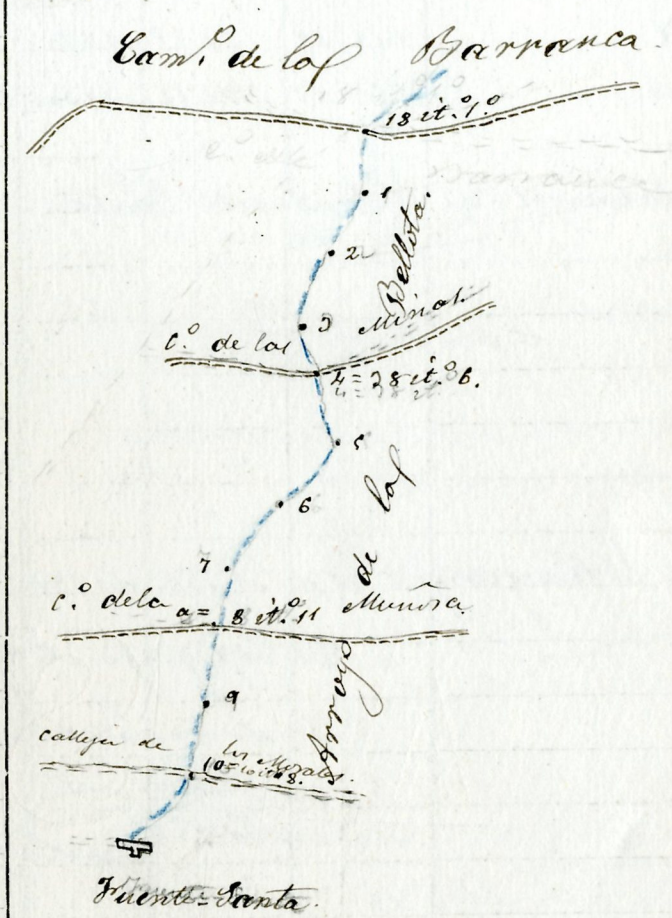 Cam.º de las Barranca
18 it.º 1.º
1
2
Bellota.
3
C.º de las Minas.
4 = 28 it.º 6.
5
6
Arroyo de las
7
C.º de la Muñosa
a = 8 it.º 11
9
Calleja de los Morales.
10
Fuente-Santa.